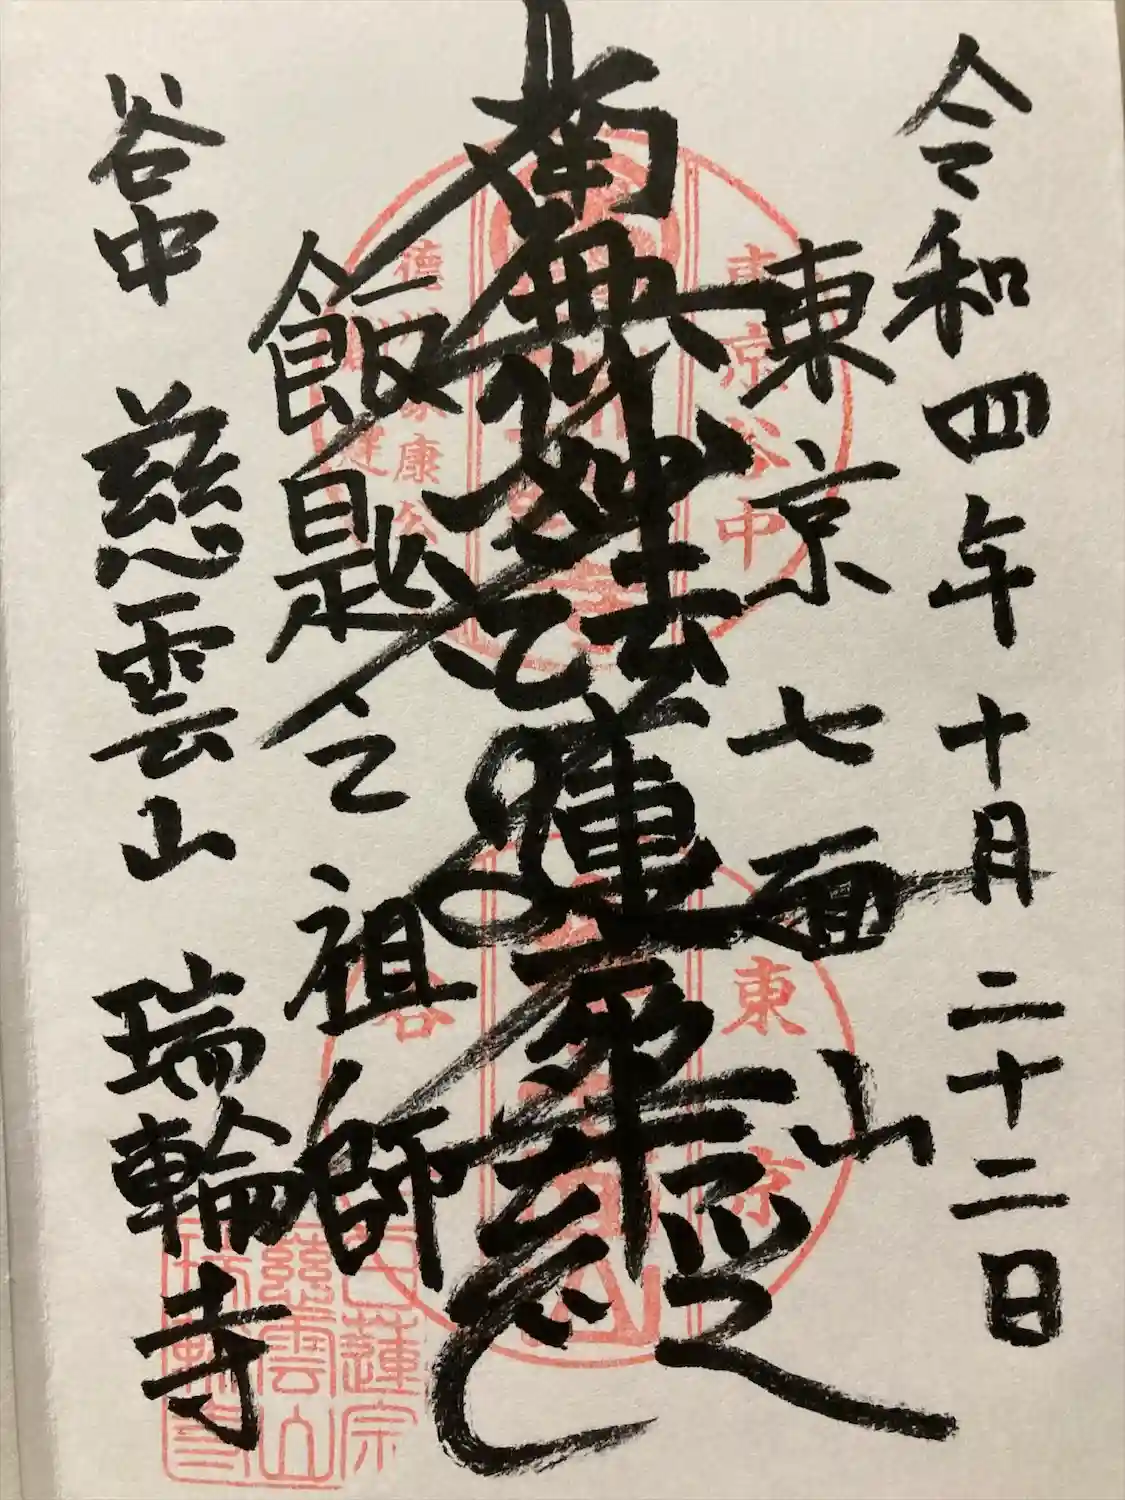 令和四年十月二十二日
東京七面山
南無妙法蓮華経
飯匙之祖師
谷中 慈雲山 瑞輪寺
東京谷中
東京
谷
日蓮宗
慈雲山
瑞輪寺